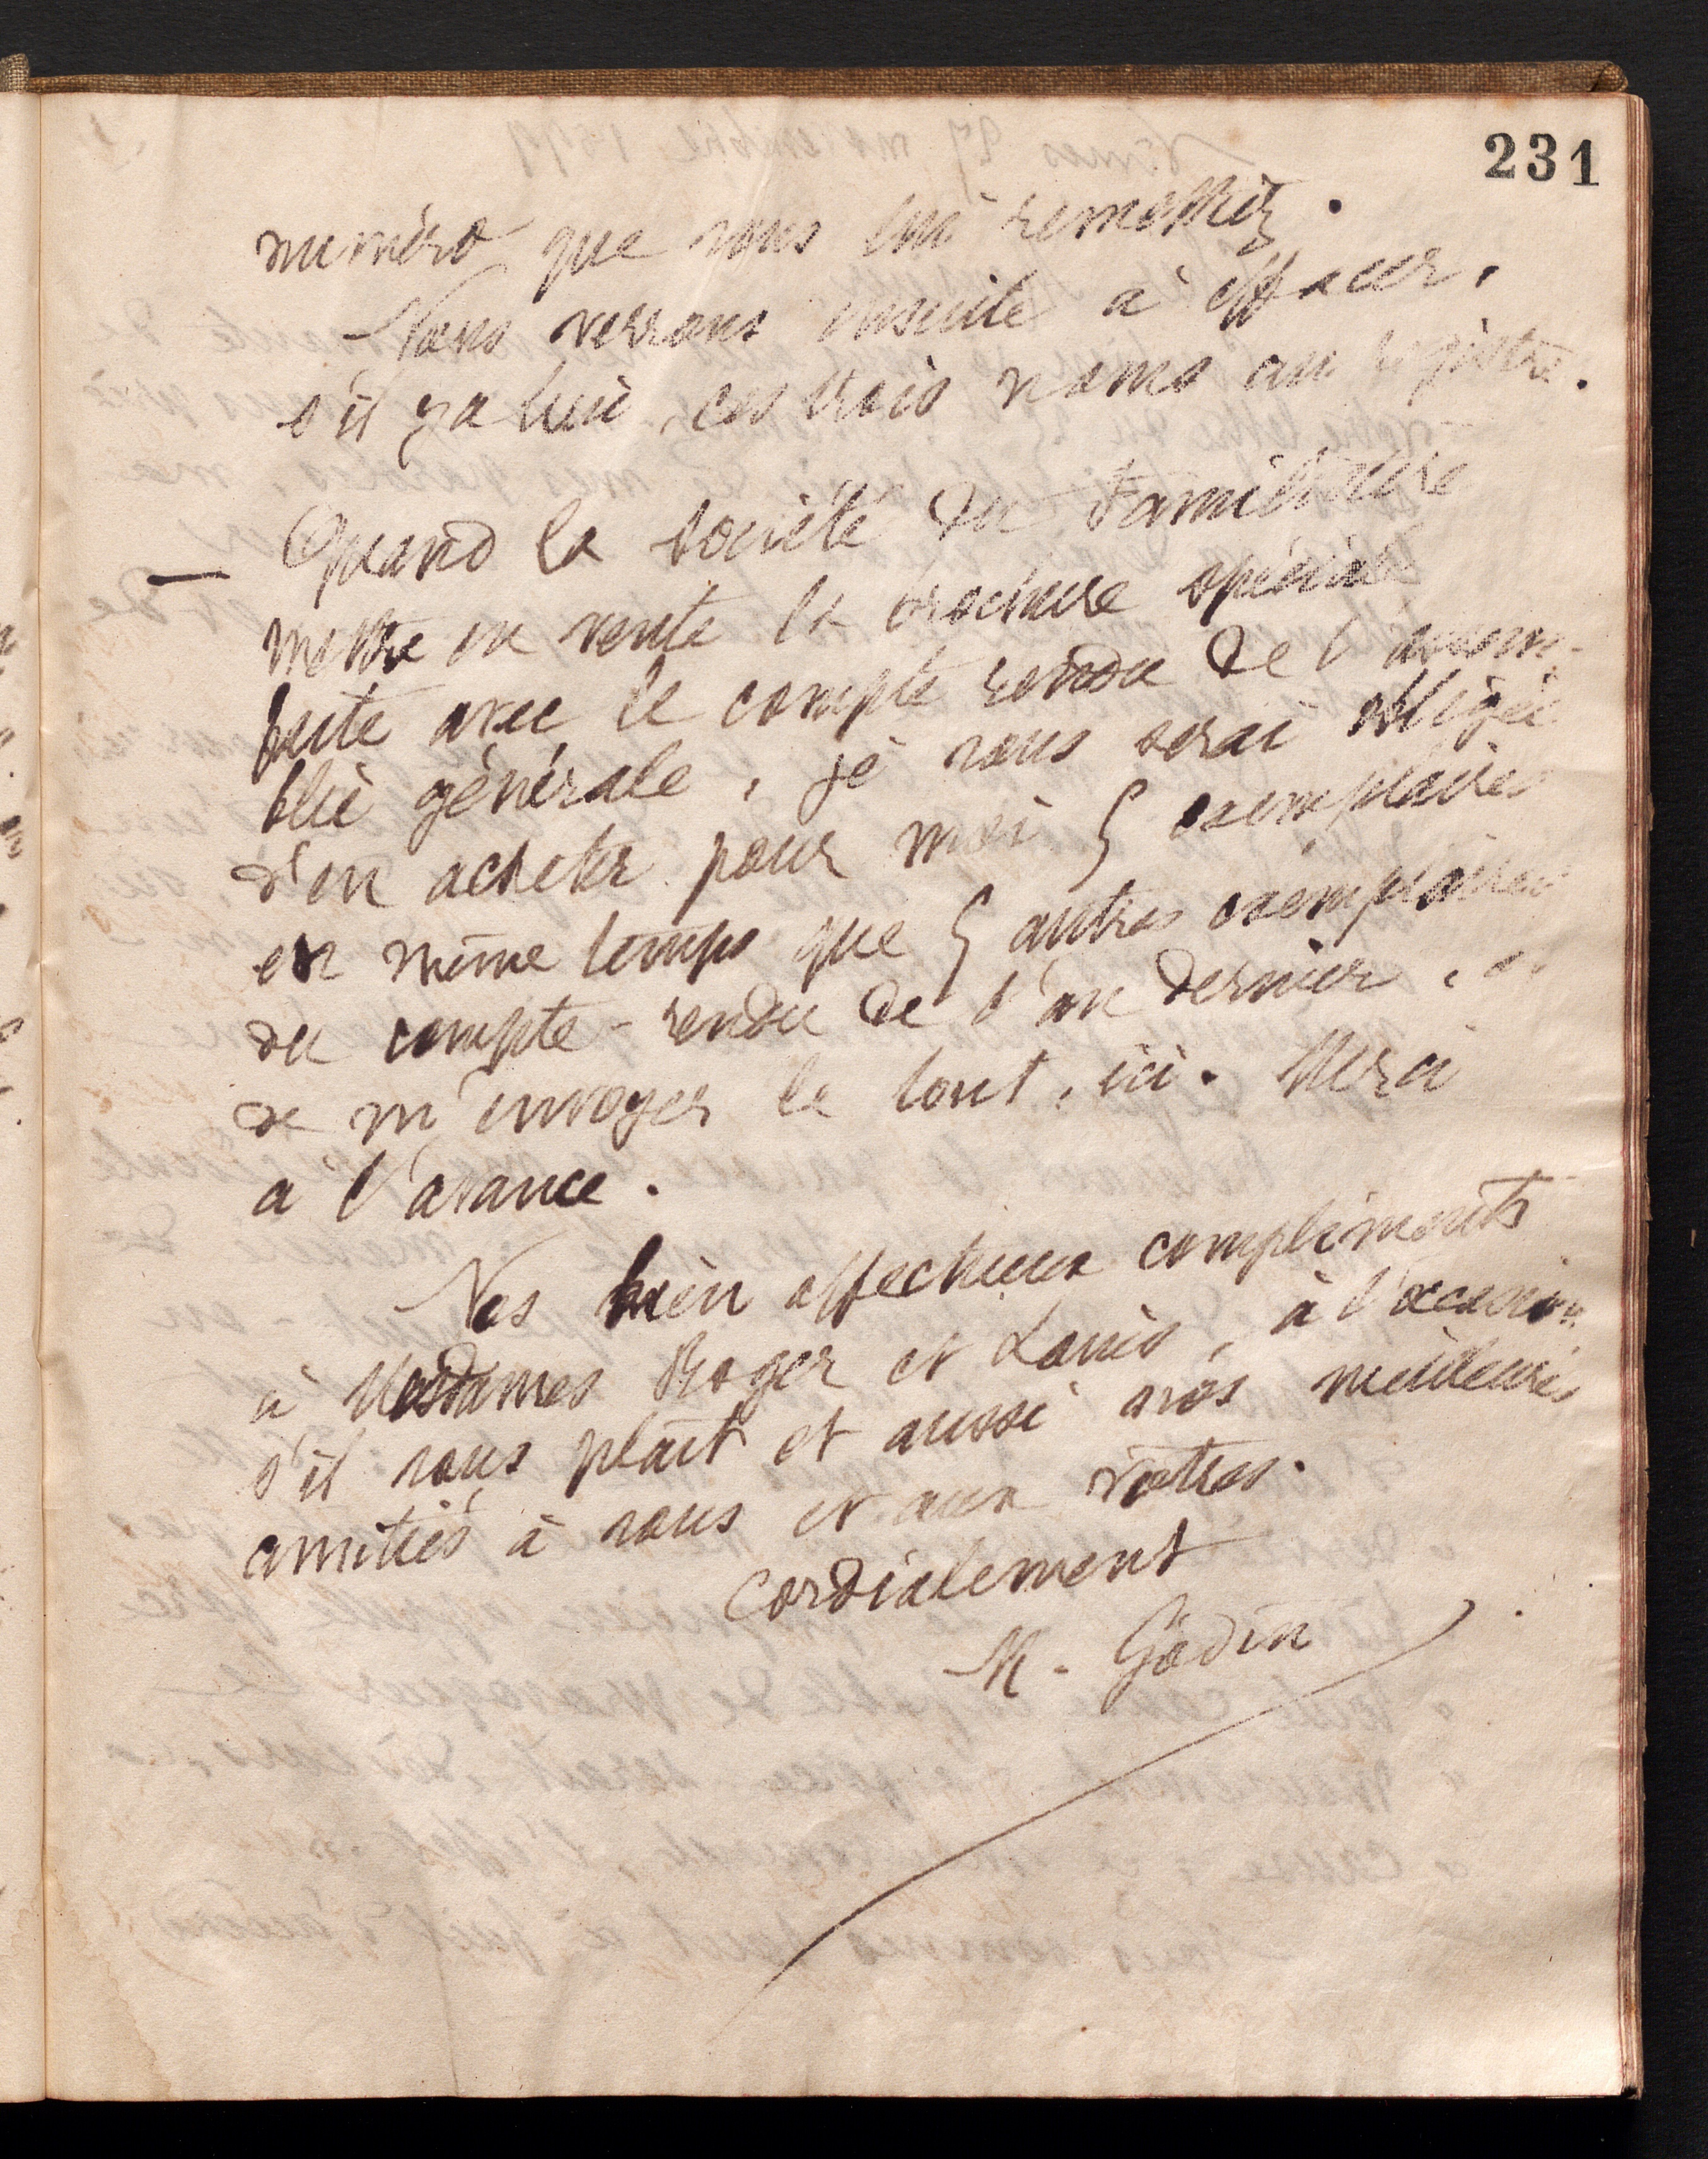 231
numéro que vous lui remettriez.
Nous verrons ensuite à effacer,
s'il y a lieu, ces trois noms au registre.
— Quand la Société du Familistère
mettra en vente la brochure spéciale
faite avec le compte rendu de l'assem-
blée générale, je vous serai obligée
d'en acheter pour moi 5 exemplaires
en même temps que 5 autres exemplaires
du compte-rendu de l'an dernier, et
de m'envoyer le tout, ici. Merci
à l'avance.
Nos bien affectueux compliments
à Mesdames Roger et Louis, à l'occasion
s'il vous plaît et aussi nos meilleures
amitiés à vous et aux vôtres.
Cordialement
M. Godin